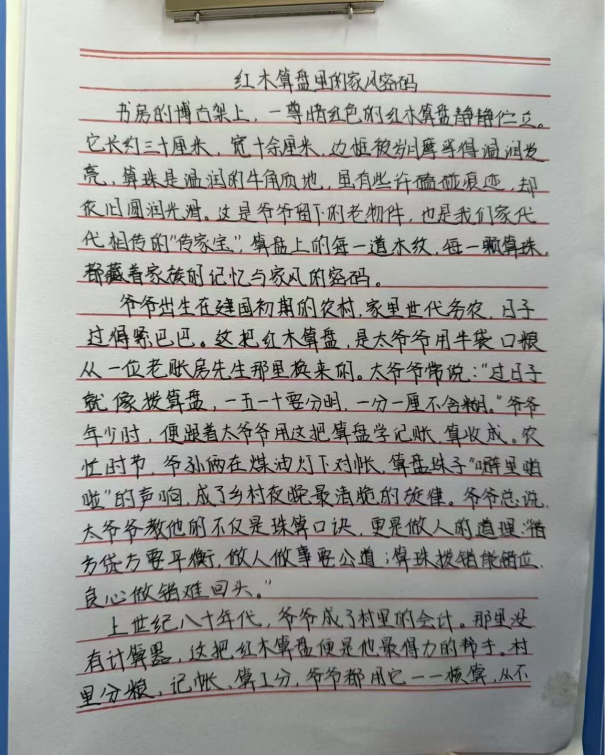 红木算盘里的家风密码
书房的博古架上，一尊暗红色的红木算盘静静伫立。
它长约三十厘米，宽十余厘米，边框被岁月摩挲得温润发
亮，算珠是温润的牛角质地，里有些许磕碰痕迹，却
依旧圆润光滑。这是爷爷留下的老物件，也是我们家代
代相传的“传家宝”，算盘上的每一道木纹，每一颗算珠，
都藏着家族的记忆与家风的密码。
爷爷出生在建国初期的农村，家里世代务农，日子
过得紧巴巴。这把红木算盘，是太爷爷用半袋口粮
从一位老账房先生那里换来的。太爷爷常说：“过日子
就像拨算盘，一五一十要分明，一分一厘不含糊。”爷爷
年少时，便跟着太爷爷用这把算盘学记账，算收成。农
忙时节，爷孙俩在煤油灯下对帐，算盘珠子“噼里啪
啦”的声响，成了乡村夜晚最清脆的旋律。爷爷总说，
太爷爷教他的不仅是珠算口诀，更是做人的道理：“借
方贷方要平衡，做人做事要公道；算珠拨错能错位，
良心做错难回头。”
上世纪八十年代，爷爷成了村里的会计。那里没
有计算器，这把红木算盘便是他最得力的帮手。村
里分粮，记帐，算工分，爷爷都用它一一核算，从不